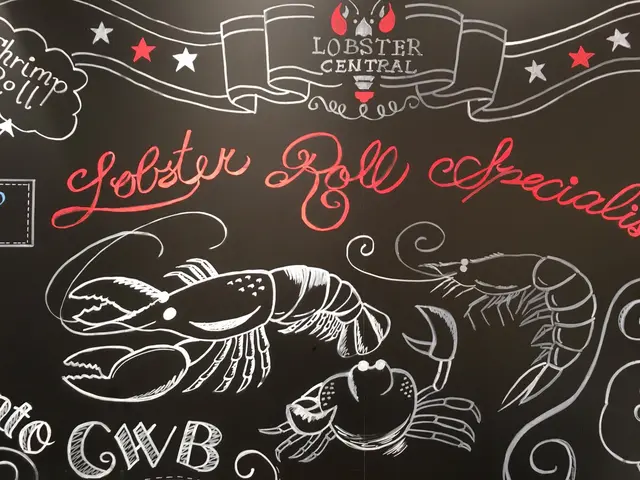 Shrimp
Roll
LOBSTER
CENTRAL
Lobster Roll Specialis
CWB